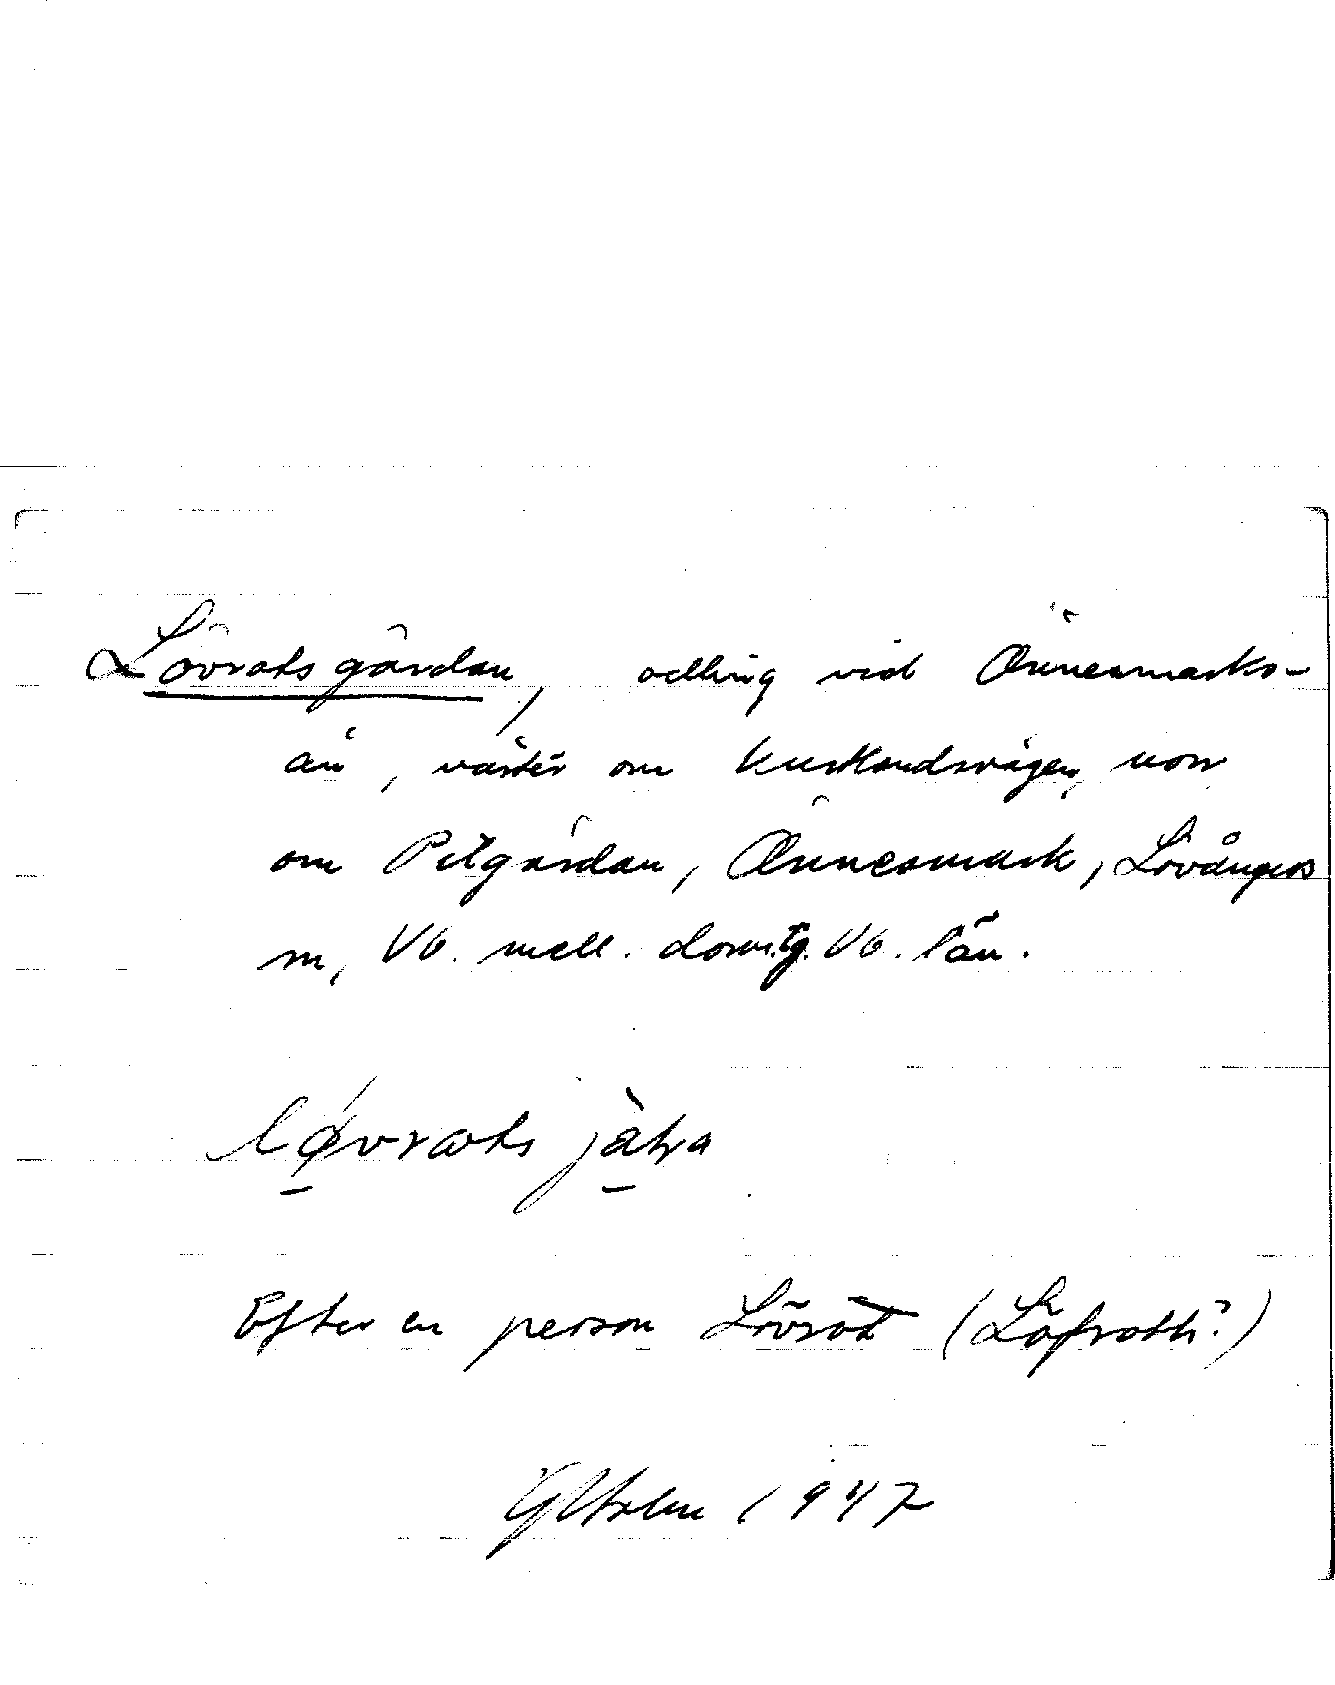 Lövratsgärdan, odling vid Önnesmarks-
ån, väster om kustlandsvägen, norr
om Pitgärdan, Önnesmark, Lövångers
sn, Vb. mell. doms.tg. Vb. län.
løvrats jäƚa
Efter en person Lövrot (Löfroth?)
Holm 1947